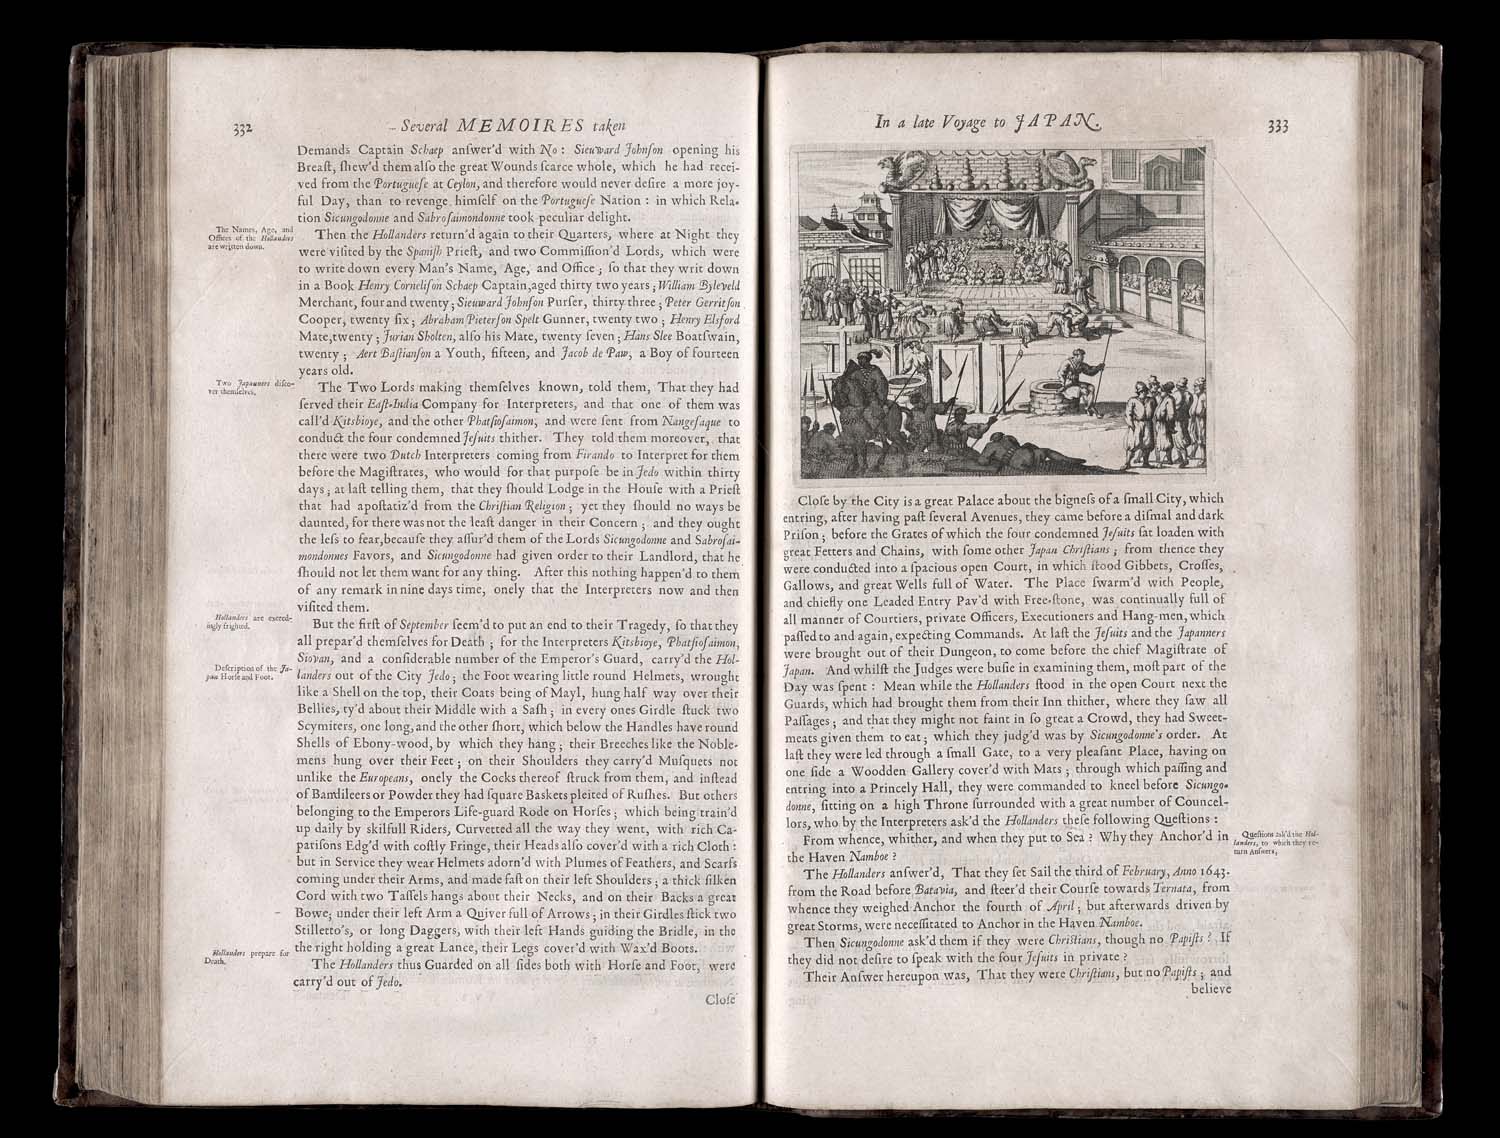 332
Several MEMOIRES taken
Demands Captain Schaep anſwer'd with No : Sieuward Johnſon opening his
Breaſt, ſhew'd them alſo the great Wounds ſcarce whole, which he had recei-
ved from the Portugueſe at Ceylon, and therefore would never deſire a more joy-
ful Day, than to revenge himſelf on the Portugueſe Nation : in which Rela-
tion Sicungodonne and Sabroſaimondonne took peculiar delight.
The Names, Age, and
Offices of the Hollanders
are written down.
Then the Hollanders return'd again to their Quarters, where at Night they
were viſited by the Spaniſh Prieſt, and two Commiſſion'd Lords, which were
to write down every Man's Name, Age, and Office ; ſo that they writ down
in a Book Henry Corneliſon Schaep Captain, aged thirty two years ; William Byleveld
Merchant, four and twenty ; Sieuward Johnſon Purſer, thirty three ; Peter Gerritſon
Cooper, twenty ſix ; Abraham Pieterſon Spelt Gunner, twenty two ; Henry Elsford
Mate, twenty ; Jurian Sholten, alſo his Mate, twenty ſeven ; Hans Slee Boatſwain,
twenty ; Aert Baſtianſon a Youth, fifteen, and Jacob de Paw, a Boy of fourteen
years old.
Two Japanners diſco-
ver themſelves.
The Two Lords making themſelves known, told them, That they had
ſerved their Eaſt-India Company for Interpreters, and that one of them was
call'd Kitsbioye, and the other Phatſioſaimon, and were ſent from Nangeſaque to
conduct the four condemned Jeſuits thither. They told them moreover, that
there were two Dutch Interpreters coming from Firando to Interpret for them
before the Magiſtrates, who would for that purpoſe be in Jedo within thirty
days ; at laſt telling them, that they ſhould Lodge in the Houſe with a Prieſt
that had apoſtatiz'd from the Chriſtian Religion ; yet they ſhould no ways be
daunted, for there was not the leaſt danger in their Concern ; and they ought
the leſs to fear, becauſe they aſſur'd them of the Lords Sicungodonne and Sabroſai-
mondonnes Favors, and Sicungodonne had given order to their Landlord, that he
ſhould not let them want for any thing. After this nothing happen'd to them
of any remark in nine days time, onely that the Interpreters now and then
viſited them.
Hollanders are exceed-
ingly frighted.
But the firſt of September ſeem'd to put an end to their Tragedy, ſo that they
all prepar'd themſelves for Death ; for the Interpreters Kitsbioye, Phatſioſaimon,
Siovan, and a conſiderable number of the Emperor's Guard, carry'd the Hol-
Deſcription of the Ja-
pan Horſe and Foot.
landers out of the City Jedo ; the Foot wearing little round Helmets, wrought
like a Shell on the top, their Coats being of Mayl, hung half way over their
Bellies, ty'd about their Middle with a Saſh ; in every ones Girdle ſtuck two
Scymiters, one long, and the other ſhort, which below the Handles have round
Shells of Ebony-wood, by which they hang ; their Breeches like the Noble-
mens hung over their Feet ; on their Shoulders they carry'd Muſquets not
unlike the Europeans, onely the Cocks thereof ſtruck from them, and inſtead
of Bandileers or Powder they had ſquare Baskets pleited of Ruſhes. But others
belonging to the Emperors Life-guard Rode on Horſes ; which being train'd
up daily by skilfull Riders, Curvetted all the way they went, with rich Ca-
pariſons Edg'd with coſtly Fringe, their Heads alſo cover'd with a rich Cloth :
but in Service they wear Helmets adorn'd with Plumes of Feathers, and Scarfs
coming under their Arms, and made faſt on their left Shoulders ; a thick ſilken
Cord with two Taſſels hangs about their Necks, and on their Backs a great
Bowe; under their left Arm a Quiver full of Arrows ; in their Girdles ſtick two
Stilletto's, or long Daggers, with their left Hands guiding the Bridle, in the
the right holding a great Lance, their Legs cover'd with Wax'd Boots.
Hollanders prepare for
Death.
The Hollanders thus Guarded on all ſides both with Horſe and Foot, were
carry'd out of Jedo.
Cloſe
In a late Voyage to JAPAN.
333
Cloſe by the City is a great Palace about the bigneſs of a ſmall City, which
entring, after having paſt ſeveral Avenues, they came before a diſmal and dark
Priſon ; before the Grates of which the four condemned Jeſuits ſat loaden with
great Fetters and Chains, with ſome other Japan Chriſtians ; from thence they
were conducted into a ſpacious open Court, in which ſtood Gibbets, Croſſes,
Gallows, and great Wells full of Water. The Place ſwarm'd with People,
and chiefly one Leaded Entry Pav'd with Free-ſtone, was continually full of
all manner of Courtiers, private Officers, Executioners and Hang-men, which
paſſed to and again, expecting Commands. At laſt the Jeſuits and the Japanners
were brought out of their Dungeon, to come before the chief Magiſtrate of
Japan. And whilſt the Judges were buſie in examining them, moſt part of the
Day was ſpent : Mean while the Hollanders ſtood in the open Court next the
Guards, which had brought them from their Inn thither, where they ſaw all
Paſſages ; and that they might not faint in ſo great a Crowd, they had Sweet-
meats given them to eat ; which they judg'd was by Sicungodonne's order. At
laſt they were led through a ſmall Gate, to a very pleaſant Place, having on
one ſide a Woodden Gallery cover'd with Mats ; through which paſſing and
entring into a Princely Hall, they were commanded to kneel before Sicungo-
donne, ſitting on a high Throne ſurrounded with a great number of Councel-
lors, who by the Interpreters ask'd the Hollanders theſe following Queſtions :
From whence, whither, and when they put to Sea ? Why they Anchor'd in
the Haven Namboe ?
Queſtions ask'd the Hol-
landers, to which they re-
turn Anſwers.
The Hollanders anſwer'd, That they ſet Sail the third of February, Anno 1643.
from the Road before Batavia, and ſteer'd their Courſe towards Ternata, from
whence they weighed Anchor the fourth of April ; but afterwards driven by
great Storms, were neceſſitated to Anchor in the Haven Namboe.
Then Sicungodonne ask'd them if they were Chriſtians, though no Papiſts ? If
they did not deſire to ſpeak with the four Jeſuits in private ?
Their Anſwer hereupon was, That they were Chriſtians, but no Papiſts ; and
believe